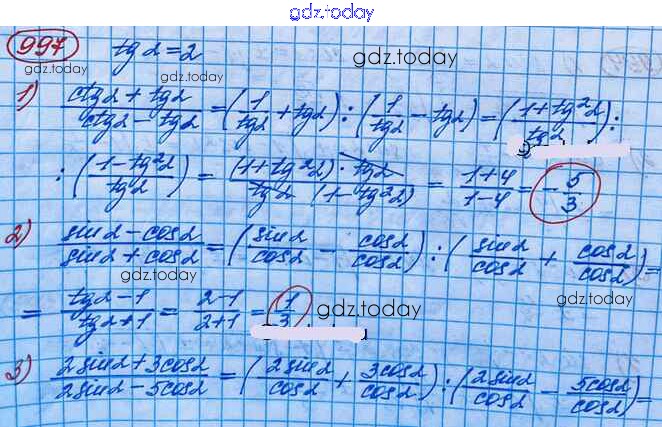 gdz.today
997 tgα = 2 gdz.today
gdz.today gdz.today
1) (ctgα + tgα)/(ctgα − tgα) = (1/tgα + tgα) : (1/tgα − tgα) = ((1 + tg²α)/tgα) :
: ((1 − tg²α)/tgα) = ((1 + tg²α) · tgα)/(tgα (1 − tg²α)) = (1+4)/(1−4) = −5/3
2) (sinα − cosα)/(sinα + cosα) = (sinα/cosα − cosα/cosα) : (sinα/cosα + cosα/cosα) =
= (tgα − 1)/(tgα + 1) = (2−1)/(2+1) = 1/3. gdz.today gdz.today
3) (2sinα + 3cosα)/(2sinα − 5cosα) = (2sinα/cosα + 3cosα/cosα) : (2sinα/cosα − 5cosα/cosα) =